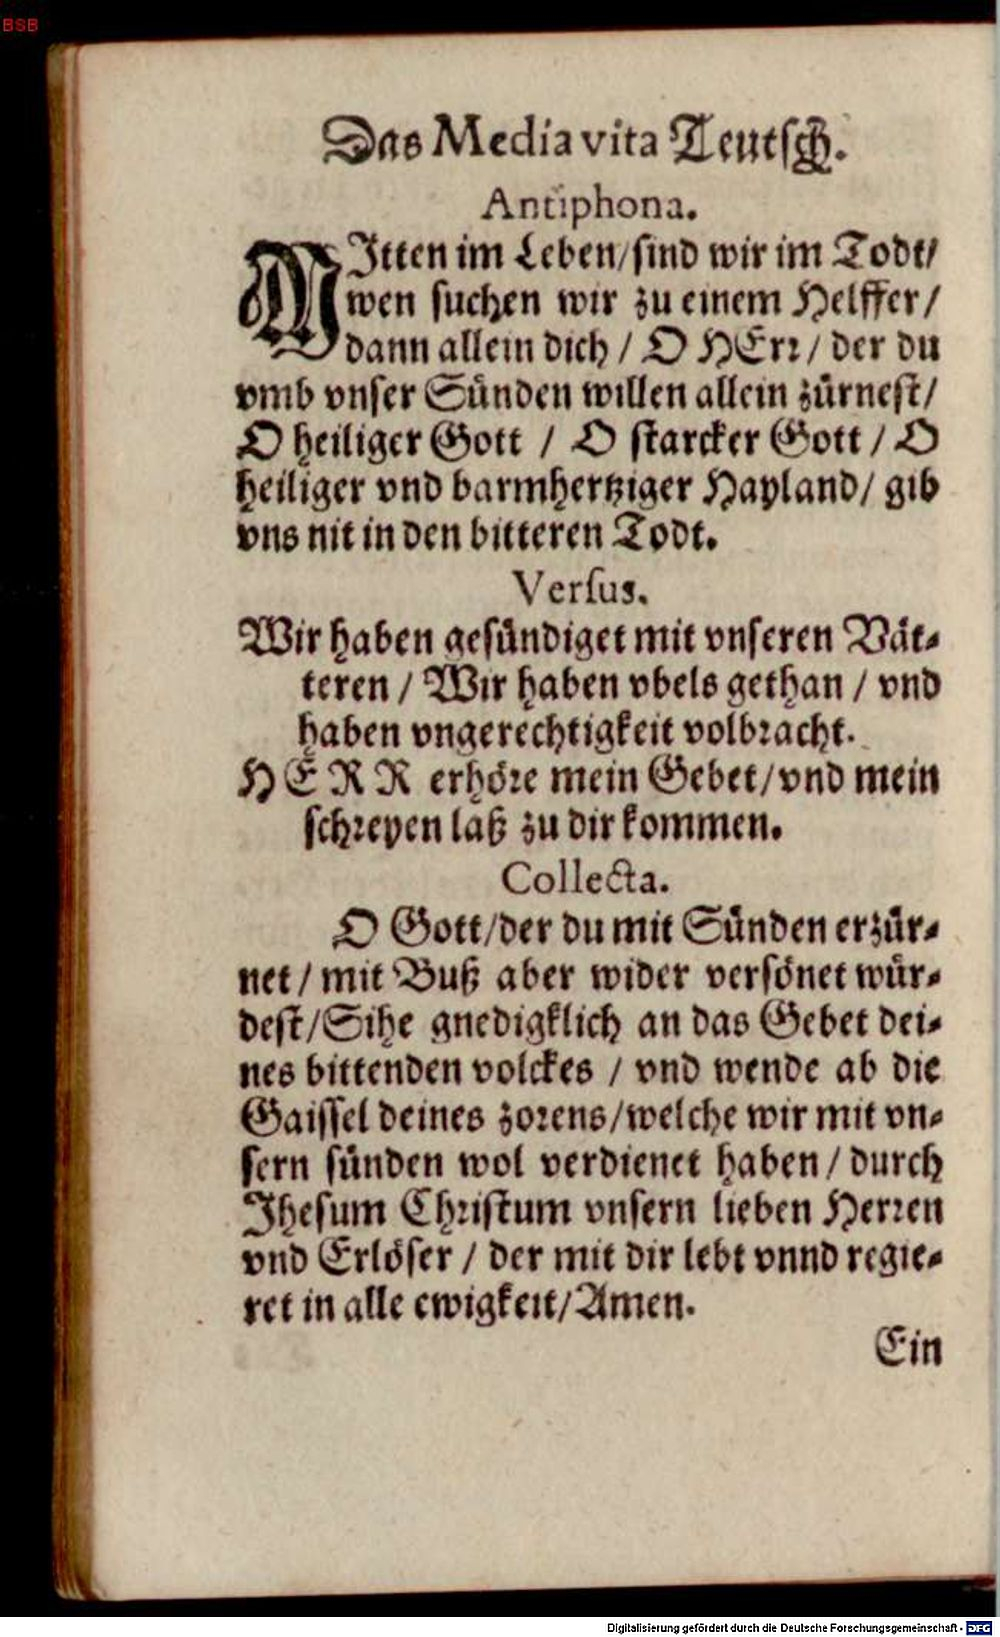 BSB
Das Media vita Teutsch.
Antiphona.
MItten im Leben/sind wir im Todt/
wen suchen wir zu einem Helffer/
dann allein dich / O HErr / der du
vmb vnser Sünden willen allein zürnest/
O heiliger Gott / O starcker Gott / O
heiliger vnd barmhertziger Hayland/ gib
vns nit in den bitteren Todt.
Versus.
Wir haben gesündiget mit vnseren Vät-
teren / Wir haben vbels gethan / vnd
haben vngerechtigkeit volbracht.
HERR erhöre mein Gebet/vnd mein
schreyen laß zu dir kommen.
Collecta.
O Gott/der du mit Sünden erzür-
net / mit Buß aber wider versönet wür-
dest/Sihe gnedigklich an das Gebet dei-
nes bittenden volckes / vnd wende ab die
Gaissel deines zorens/welche wir mit vn-
sern sünden wol verdienet haben / durch
Jhesum Christum vnsern lieben Herren
vnd Erlöser / der mit dir lebt vnnd regie-
ret in alle ewigkeit/Amen.
Ein
Digitalisierung gefördert durch die Deutsche Forschungsgemeinschaft - DFG